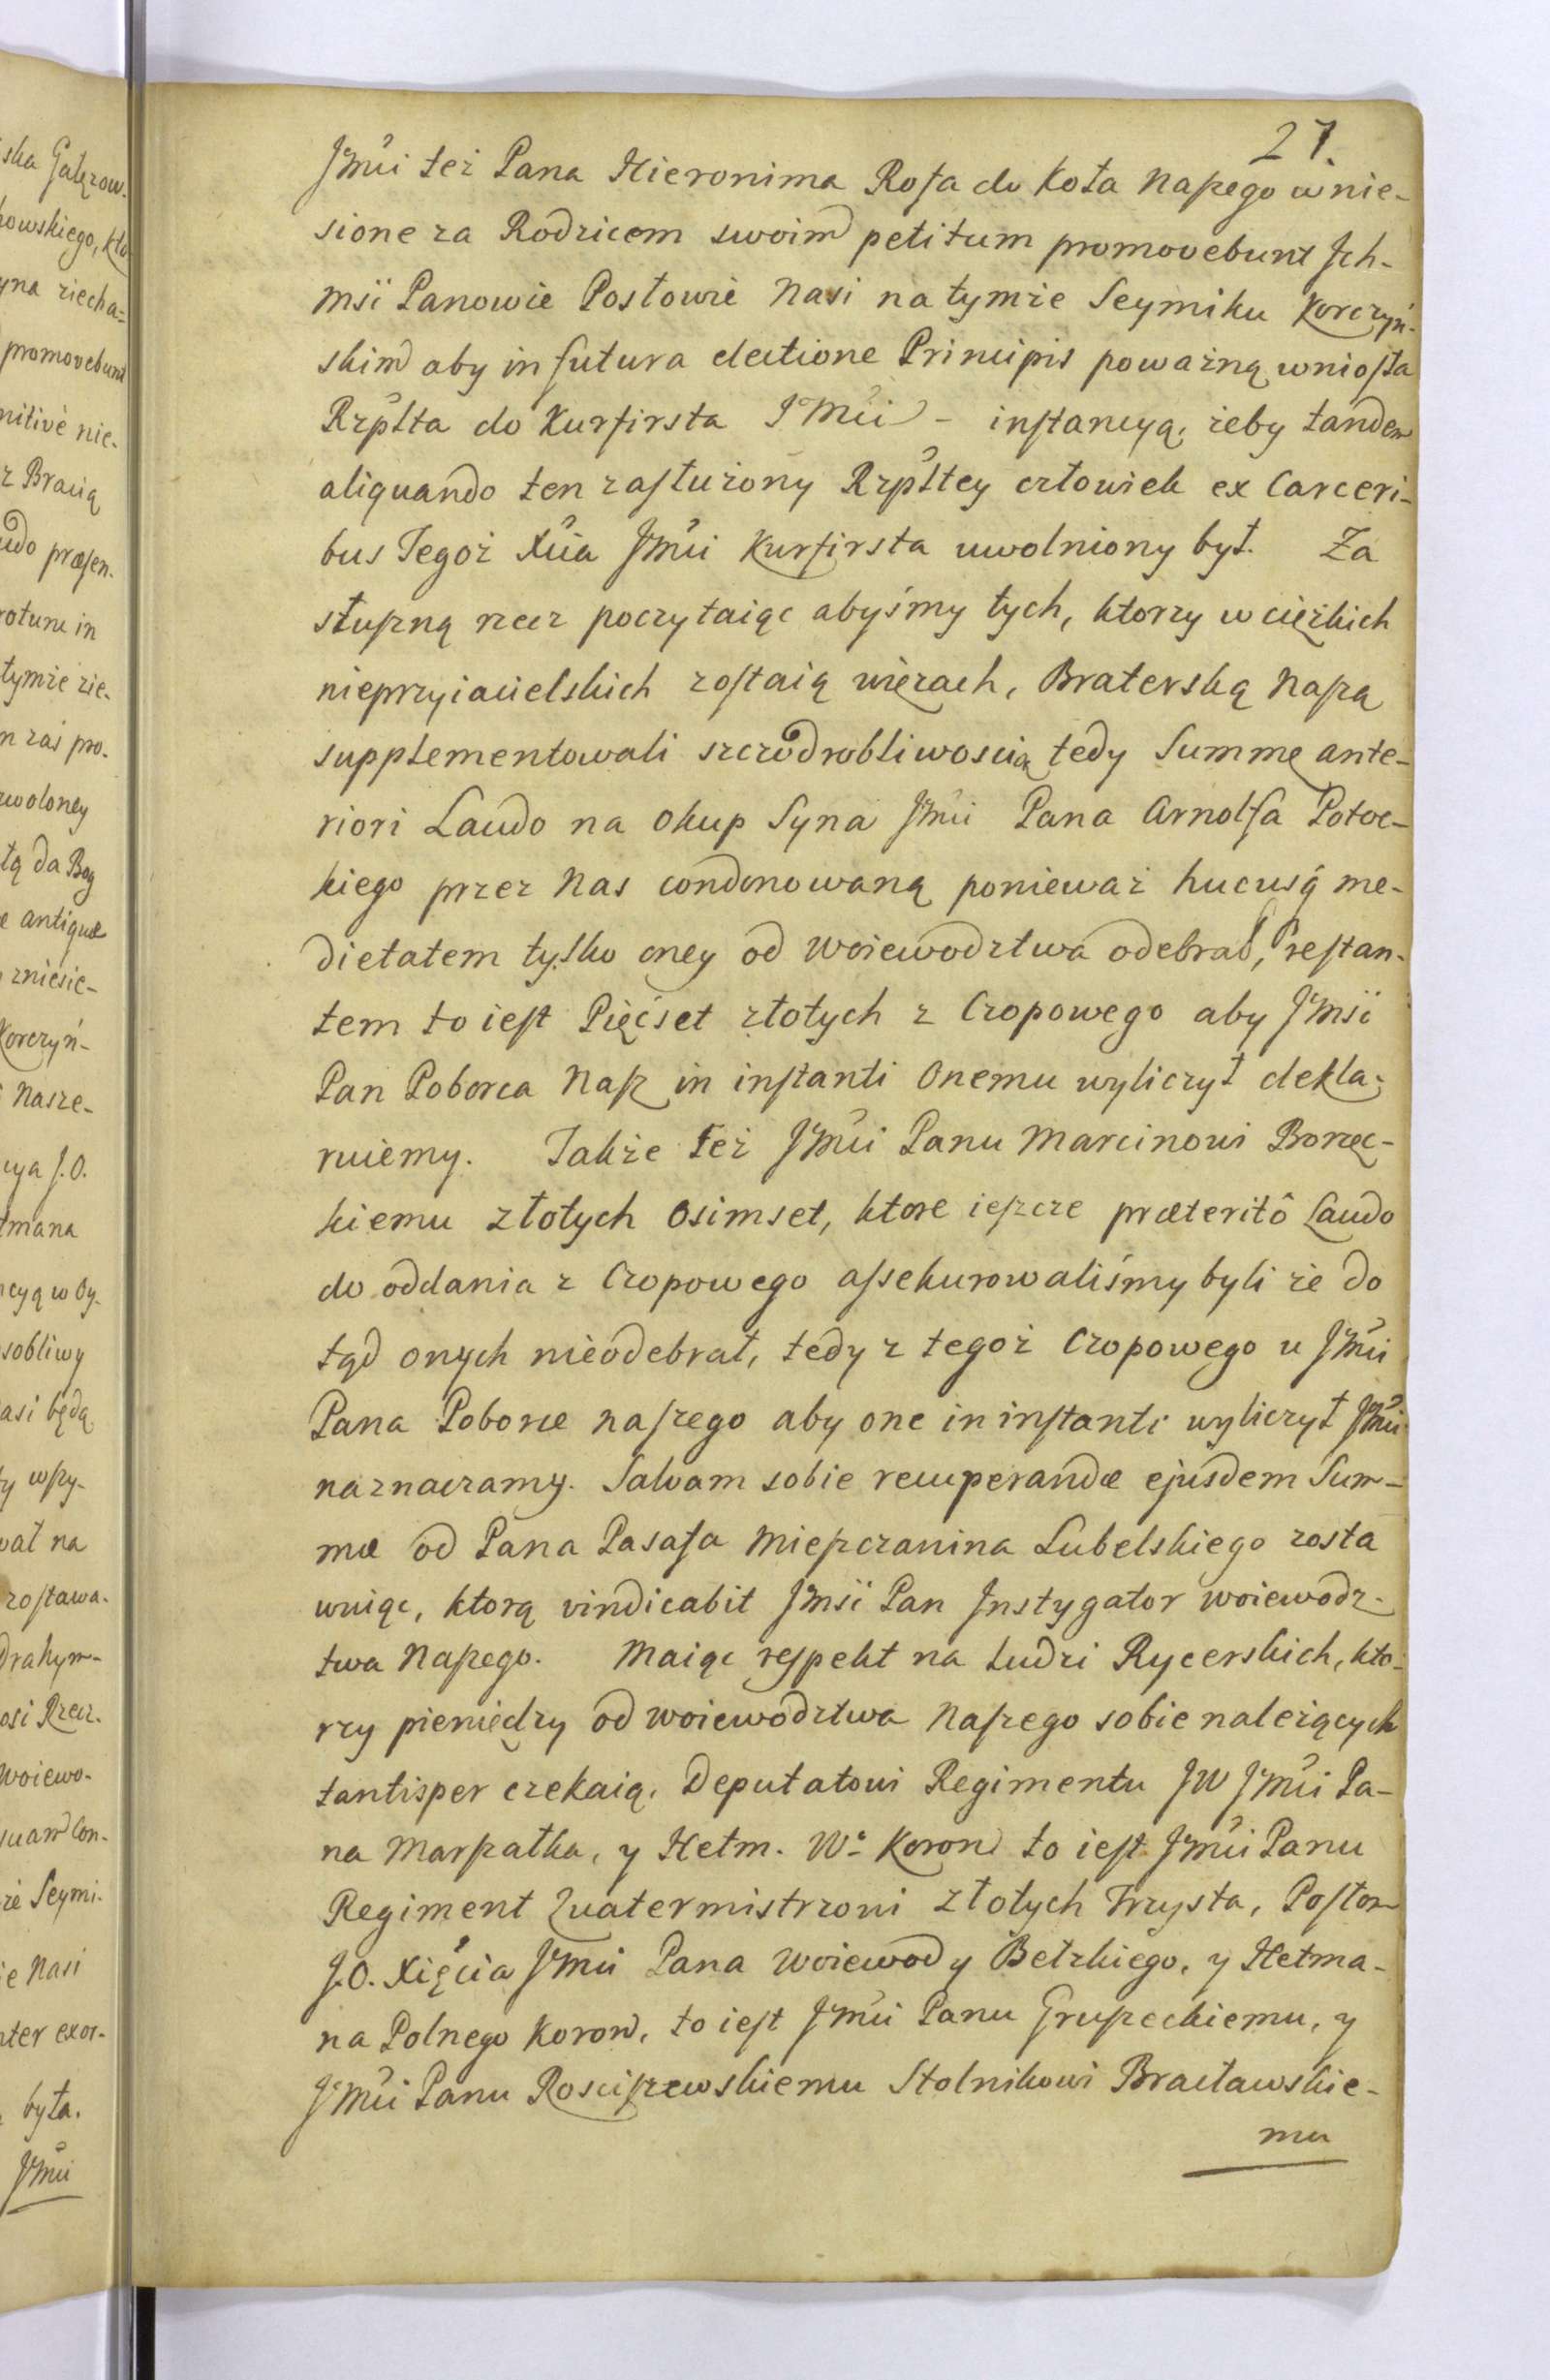 27.
Jmći też Pana Hieronima Rosa do Koła Naszego wnie-
sione za Rodzicem swoim petitum promovebunt Ich-
mśći Panowie Posłowie Nasi na tymże Seymiku Korczyń-
skim aby in futura electione Principis poważną wniosła
Rzplta do Kurfirsta J Mći - instancyą, żeby tandem
aliquando ten zasłużony Rzpltey człowiek ex Carceri-
bus Tegoż Xcia Jmći Kurfirsta uwolniony był. Za
słuszną rzecz poczytaiąc abyśmy tych, ktorzy w cięźkich
nieprzyiacielskich zostaią więzach, Braterską Naszą
supplementowali szczodrobliwoscią tedy Summę ante-
riori Laudo na okup Syna Jmći Pana Arnolfa Potoc-
kiego przez Nas condonowaną ponieważ hucusq me-
dietatem tylko oney od Woiewodztwa odebrał, restan-
tem to iest Pięćset złotych z Czopowego aby Jmść
Pan Poborca Nasz in instanti Onemu wyliczył dekla-
ruiemy. Takze też Jmći Panu Marcinowi Borzęc-
kiemu złotych Osimset, ktore ieszcze præteritô Laudo
do oddania z Czopowego assekurowaliśmy byli że do
tąd onych nieodebrał, tedy z tegoż Czopowego u Jmći
Pana Poborce naszego aby one in instanti wyliczył Jmći
naznaczamy. Salvam sobie recuperandæ ejusdem Sum-
mæ od Pana Pasasa Mieszczanina Lubelskiego zosta
wuiąc, ktorą vindicabit Jmść Pan Instygator Woiewodz-
twa Naszego. Maiąc respekt na Ludzi Rycerskich, kto-
rzy pieniędzy od Woiewodztwa Naszego sobie należących
tantisper czekaią, Deputatowi Regimentu JW Jmći Pa-
na Marszałka, y Hetm. Wo Koron to iest Jmći Panu
Regiment Quatermistrzowi złotych Trzysta, Posłom
J.O. Xięcia Jmći Pana Woiewody Bełzkiego, y Hetma-
na Polnego Koron, to iest Jmći Panu Gruszeckiemu, y
Jmći Panu Rosciszewskiemu Stolnikowi Bracławskie-
mu